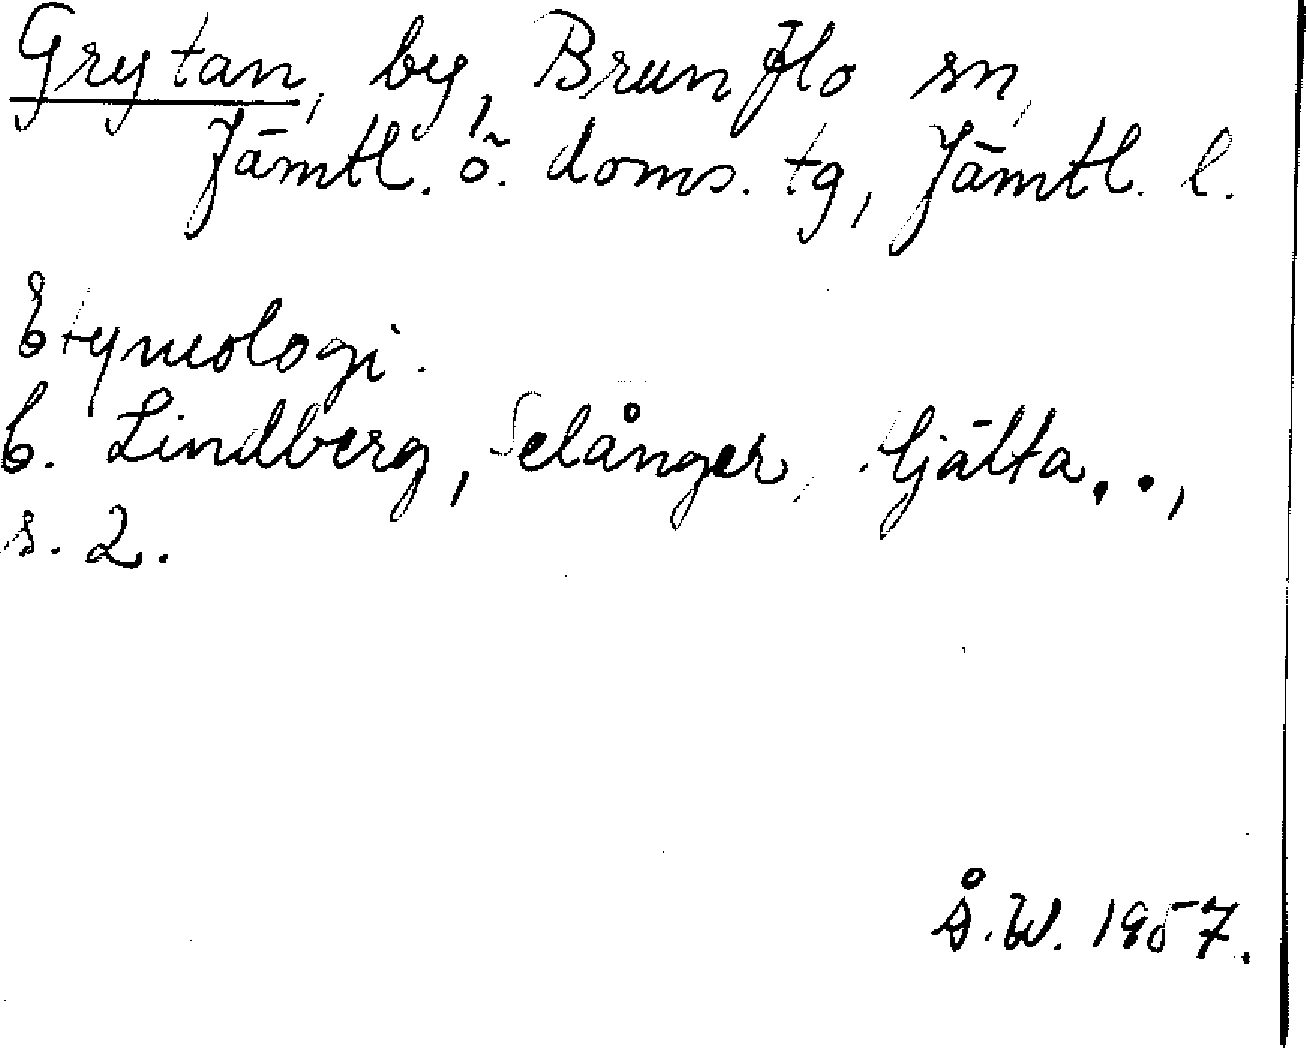 Grytan, by, Brunflo sn,
Jämtl. ö. doms. tg, Jämtl. l.
Etymologi.
C. Lindberg, Selånger, Hjälta..,
s. 2.
Å.W. 1957.